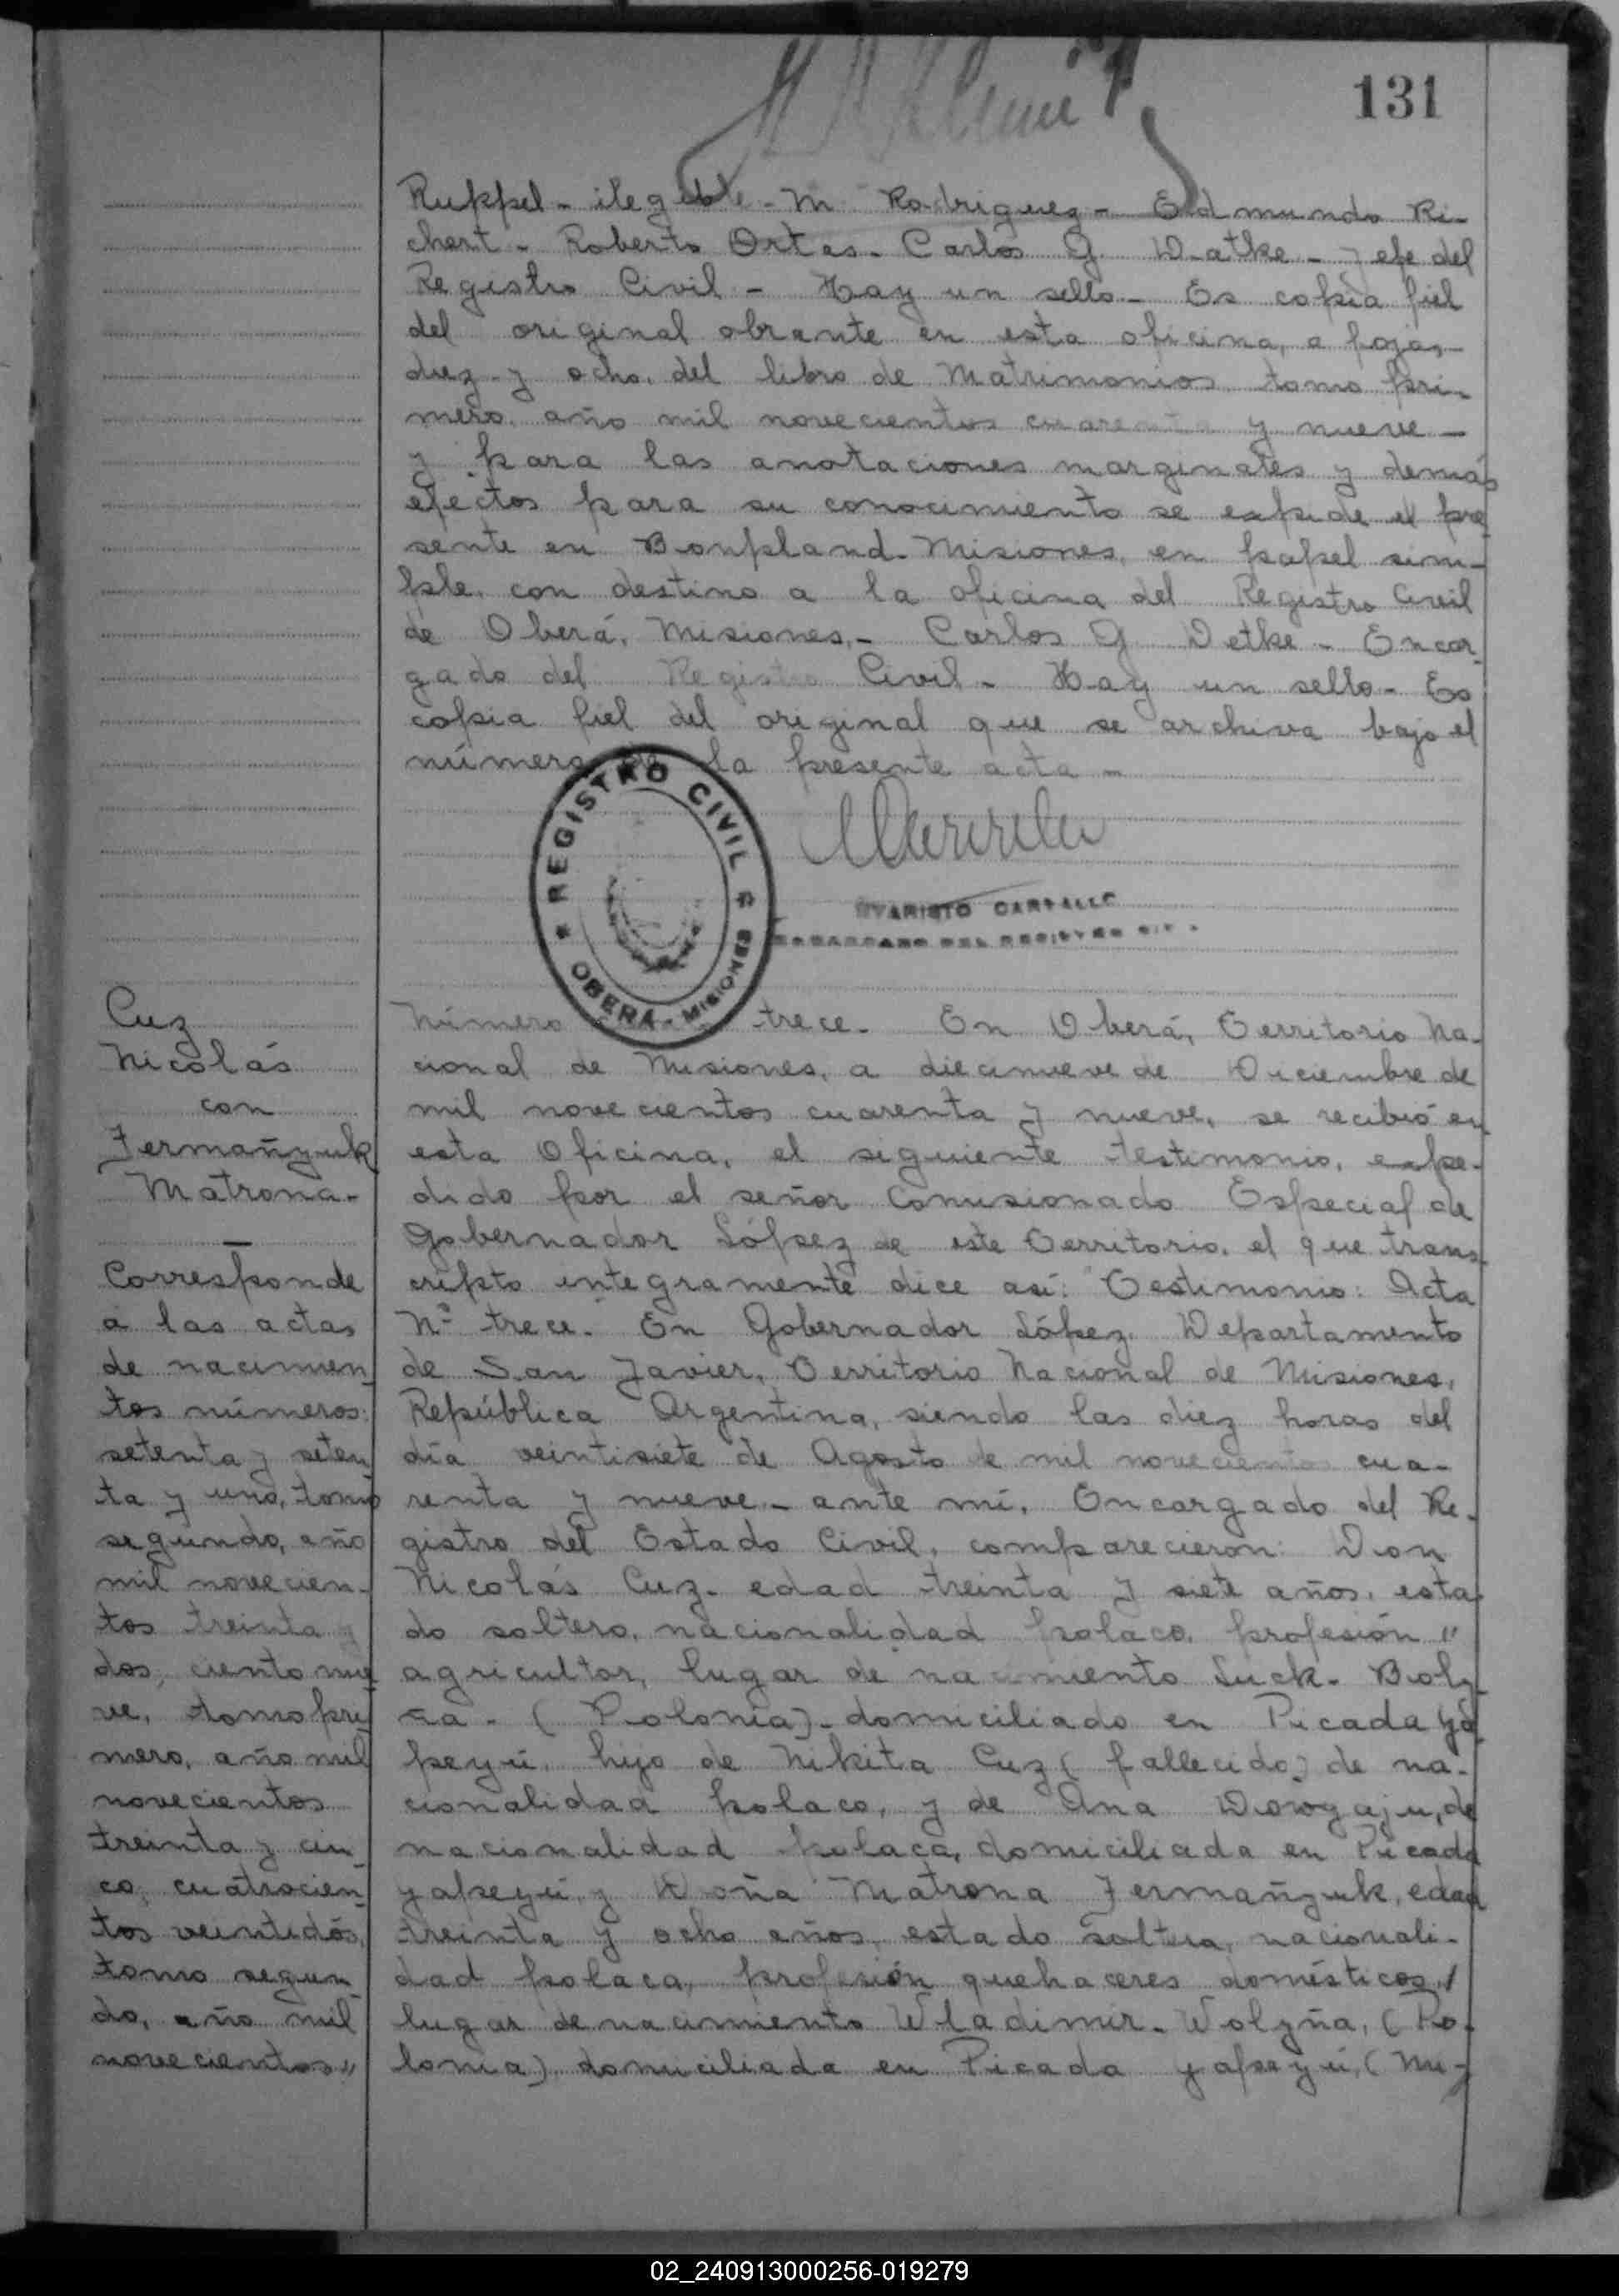 131
Rukpel - ilegible - M. Rodriguez - Edmundo Ri-
chert - Roberto Ortas - Carlos G Watke - Jefe del
Registro Civil - Hay un sello - Es copia fiel
del original obrante en esta oficina, a fojas
diez y ocho, del libro de Matrimonios tomo pri-
mero, año mil novecientos cuarenta y nueve -
y para las anotaciones marginales y demás
efectos para su conocimiento se expide el pre
sente en Bonpland - Misiones, en papel sim-
ple, con destino a la oficina del Registro Civil
de Oberá, Misiones. - Carlos G Wetke - Encar
gado del Registro Civil - Hay un sello - Es
copia fiel del original que se archiva bajo el
número de la presente acta -
REGISTRO CIVIL
OBERÁ - MISIONES
EVARISTO CARVALLO
ENCARGADO DEL REGISTRO CIVIL
Cuz
Nicolás
con
Jermañzuk
Matrona -
Corresponde
a las actas
de nacimien
tos números:
setenta y seten
ta y uno, tomo
segundo, año
mil novecien-
tos treinta y
dos, ciento nue
ve, tomo pri
mero, año mil
novecientos
treinta y cin
co, cuatrocien
tos veintidós,
tomo segun
do, año mil
novecientos "
Número trece. En Oberá, Territorio Na-
cional de Misiones, a diecinueve de Diciembre de
mil novecientos cuarenta y nueve, se recibió en
esta Oficina, el siguiente testimonio, expe-
dido por el señor Comisionado Especial de
Gobernador López de este Territorio, el que trans
cripto integramente dice así: Testimonio: Acta
Nº trece. En Gobernador López, Departamento
de San Javier, Territorio Nacional de Misiones,
República Argentina, siendo las diez horas del
día veintisiete de Agosto de mil novecientos cua-
renta y nueve - ante mí, Encargado del Re-
gistro del Estado Civil, comparecieron: Don
Nicolás Cuz - edad treinta y siete años, esta
do soltero, nacionalidad polaco, profesión "
agricultor, lugar de nacimiento Luck - Wolz
ña - (Polonia) - domiciliado en Picada Ya
peyú, hijo de Nikita Cuz (fallecido) de na-
cionalidad polaco, y de Ana Dowgaju, de
nacionalidad polaca, domiciliada en Picada
Yapeyú y Doña Matrona Jermañzuk, edad
treinta y ocho años, estado soltera, nacionali-
dad polaca, profesión quehaceres domésticos /
lugar de nacimiento Wladimir - Wolzña, (Po-
lonia) domiciliada en Picada Yapeyú, (Mi-
02_240913000256-019279